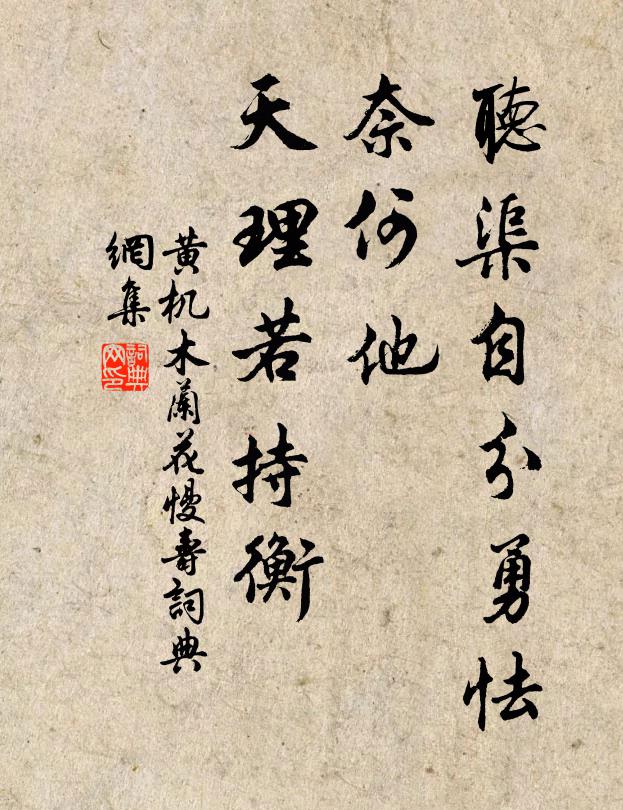 聽渠自分勇怯
奈何他
天理若持衡
黄机木蘭花慢壽詞典
網集
詞典
网印